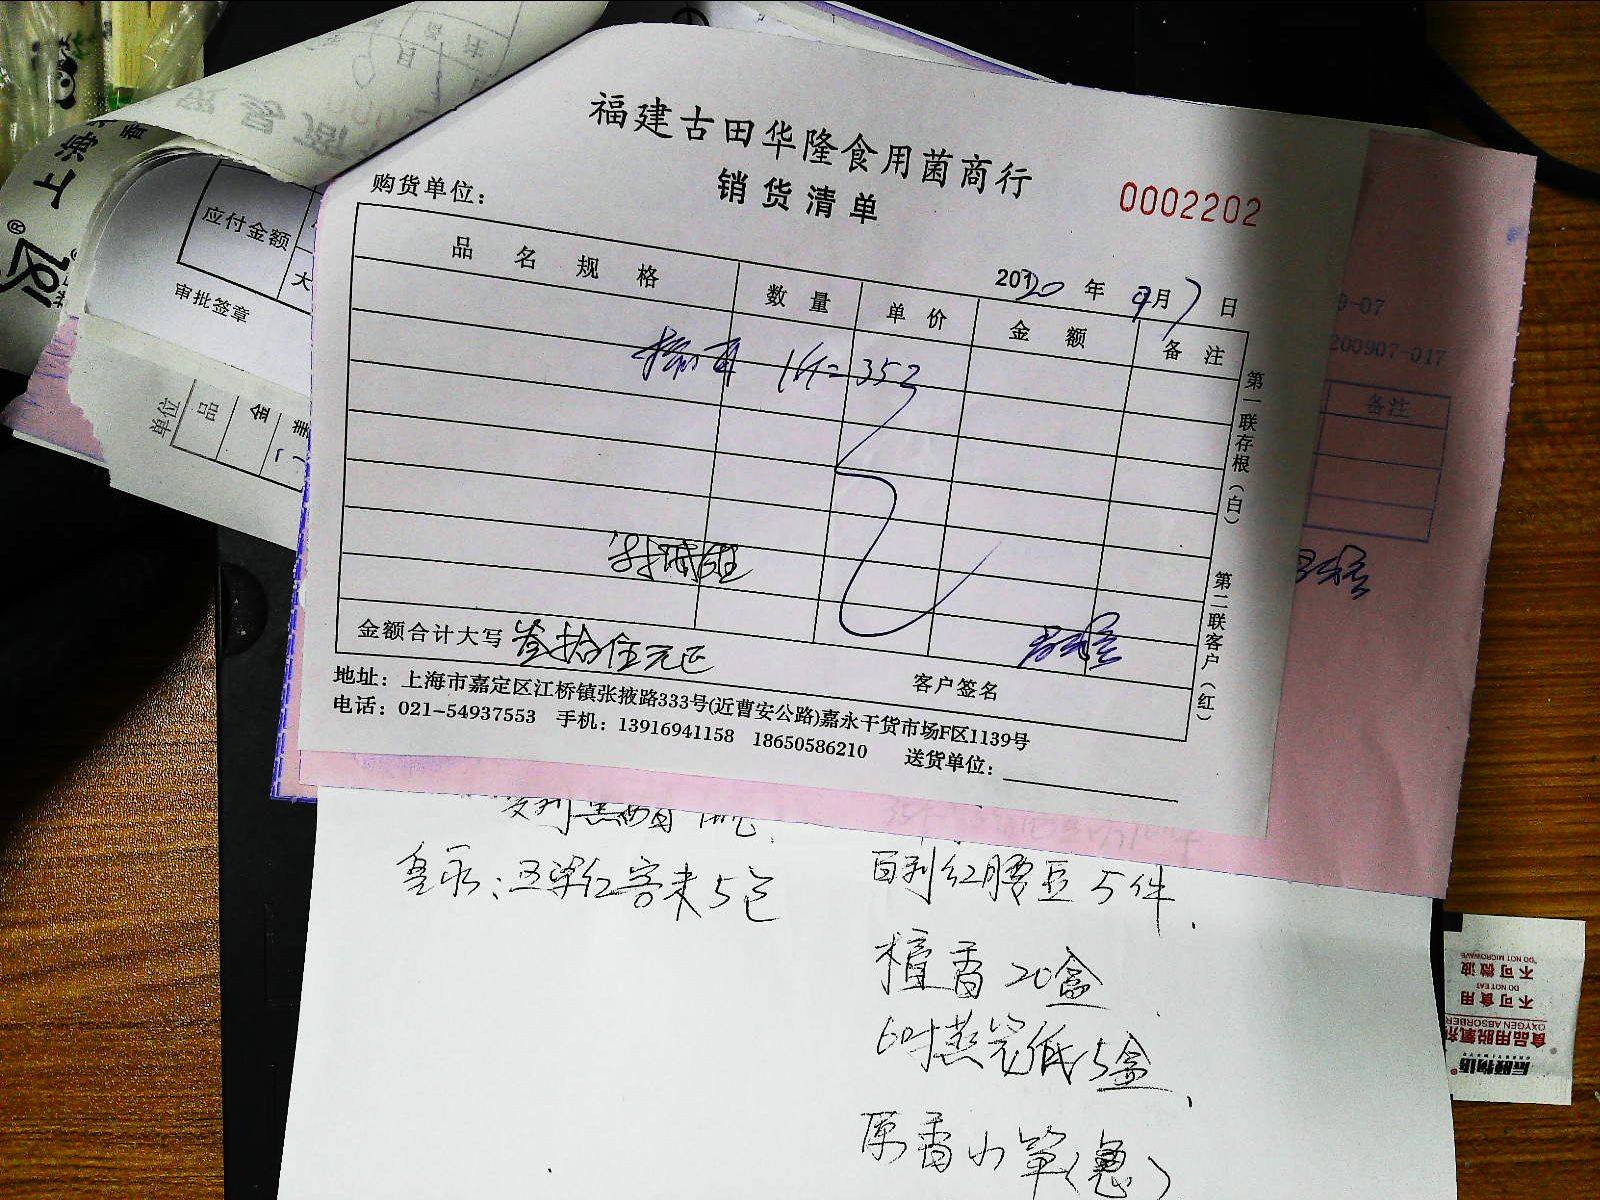 福建古田华隆食用菌商行
销货清单
0002202
购货单位：
2020 年 9月7日
品名规格 数量 单价 金额 备注
1斤= 35元
金额合计大写 叁拾伍元正
客户签名
地址：上海市嘉定区江桥镇张掖路333号(近曹安公路)嘉永干货市场F区1139号
电话：021-54937553 手机：13916941158 18650586210 送货单位：
第一联存根（白）
第二联客户（红）
应付金额
审批签章
单位
品
金
上海
9-07
200907-017
备注
五梁红客来5包
百利红腰豆5件
檀香20盒
6吋蒸笼纸5盒
原香小笋(急)
不可微波
DO NOT MICROWAVE
不可食用
DO NOT EAT
OXYGEN ABSORBER
食品用脱氧剂